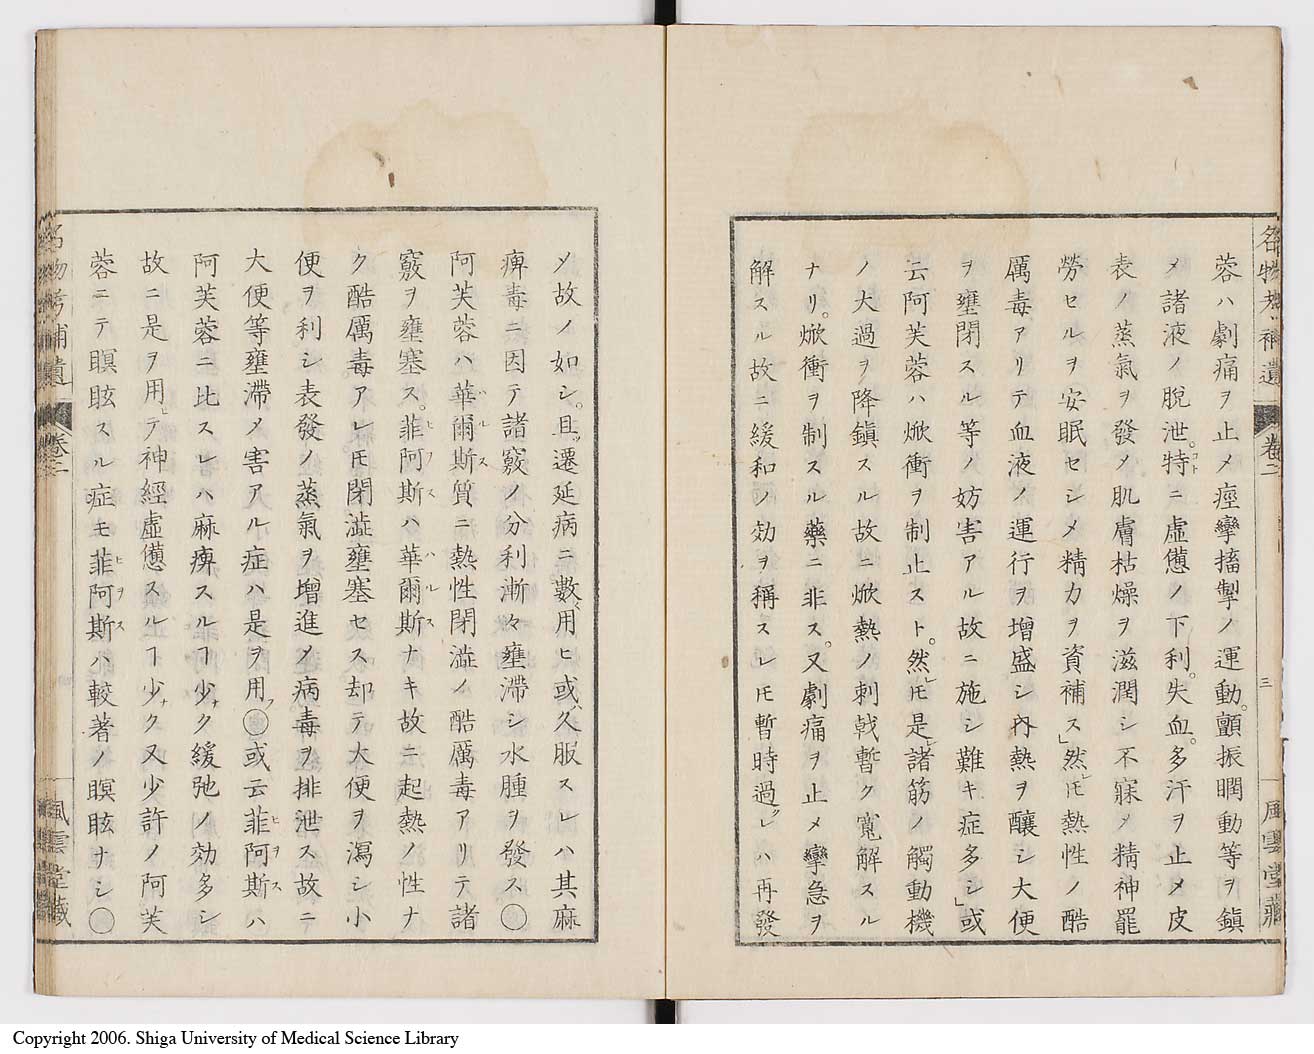 名物考補遺 卷二 三 風雲堂藏
蓉ハ劇痛ヲ止メ痙攣搐掣ノ運動。顫振瞤動等ヲ鎭
メ諸液ノ脫泄。特ニ虛憊ノ下利。失血。多汗ヲ止メ皮
表ノ蒸氣ヲ發メ肌膚枯燥ヲ滋潤シ不寐メ精神罷
勞セルヲ安眠セシメ精力ヲ資補ス」然レ𪜈熱性ノ酷
厲毒アリテ血液ノ運行ヲ增盛シ內熱ヲ釀シ大便
ヲ壅閉スル等ノ妨害アル故ニ施シ難キ症多シ」或
云阿芙蓉ハ焮衝ヲ制止スト。然レ𪜈是レ諸筋ノ觸動機
ノ大過ヲ降鎭スル故ニ焮熱ノ刺戟暫ク寬解スル
ナリ。焮衝ヲ制スル藥ニ非ス。又劇痛ヲ止メ攣急ヲ
解スル故ニ緩和ノ効ヲ稱スレ𪜈暫時過クレハ再發
メ故ノ如シ。且ツ遷延病ニ數〻用ヒ或久〻服スレハ其麻
痺毒ニ因テ諸竅ノ分利漸々壅滯シ水腫ヲ發ス○
阿芙蓉ハ華爾斯質ニ熱性閉澁ノ酷厲毒アリテ諸
竅ヲ壅塞ス。菲阿斯ハ華爾斯ナキ故ニ起熱ノ性ナ
ク酷厲毒アレ𪜈閉澁壅塞セス却テ大便ヲ瀉シ小
便ヲ利シ表發ノ蒸氣ヲ增進メ病毒ヲ排泄ス故ニ
大便等壅滯ノ害アル症ハ是ヲ用フ○或云菲阿斯ハ
阿芙蓉ニ比スレハ麻痺スルヿ少ナク緩弛ノ効多シ
故ニ是ヲ用ヒテ神經虛憊スルヿ少ナク又少許ノ阿芙
蓉ニテ瞑眩スル症モ菲阿斯ハ較著ノ瞑眩ナシ○
名物考補遺 卷二 風雲堂藏
Copyright 2006. Shiga University of Medical Science Library